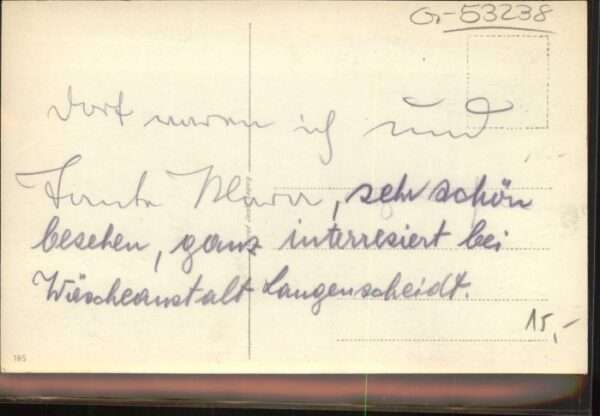 G-53238
Dort waren ich und
Tante Maria, sehr schön
besehen, ganz interresiert bei
Wäscheanstalt Langenscheidt.
15,-
185